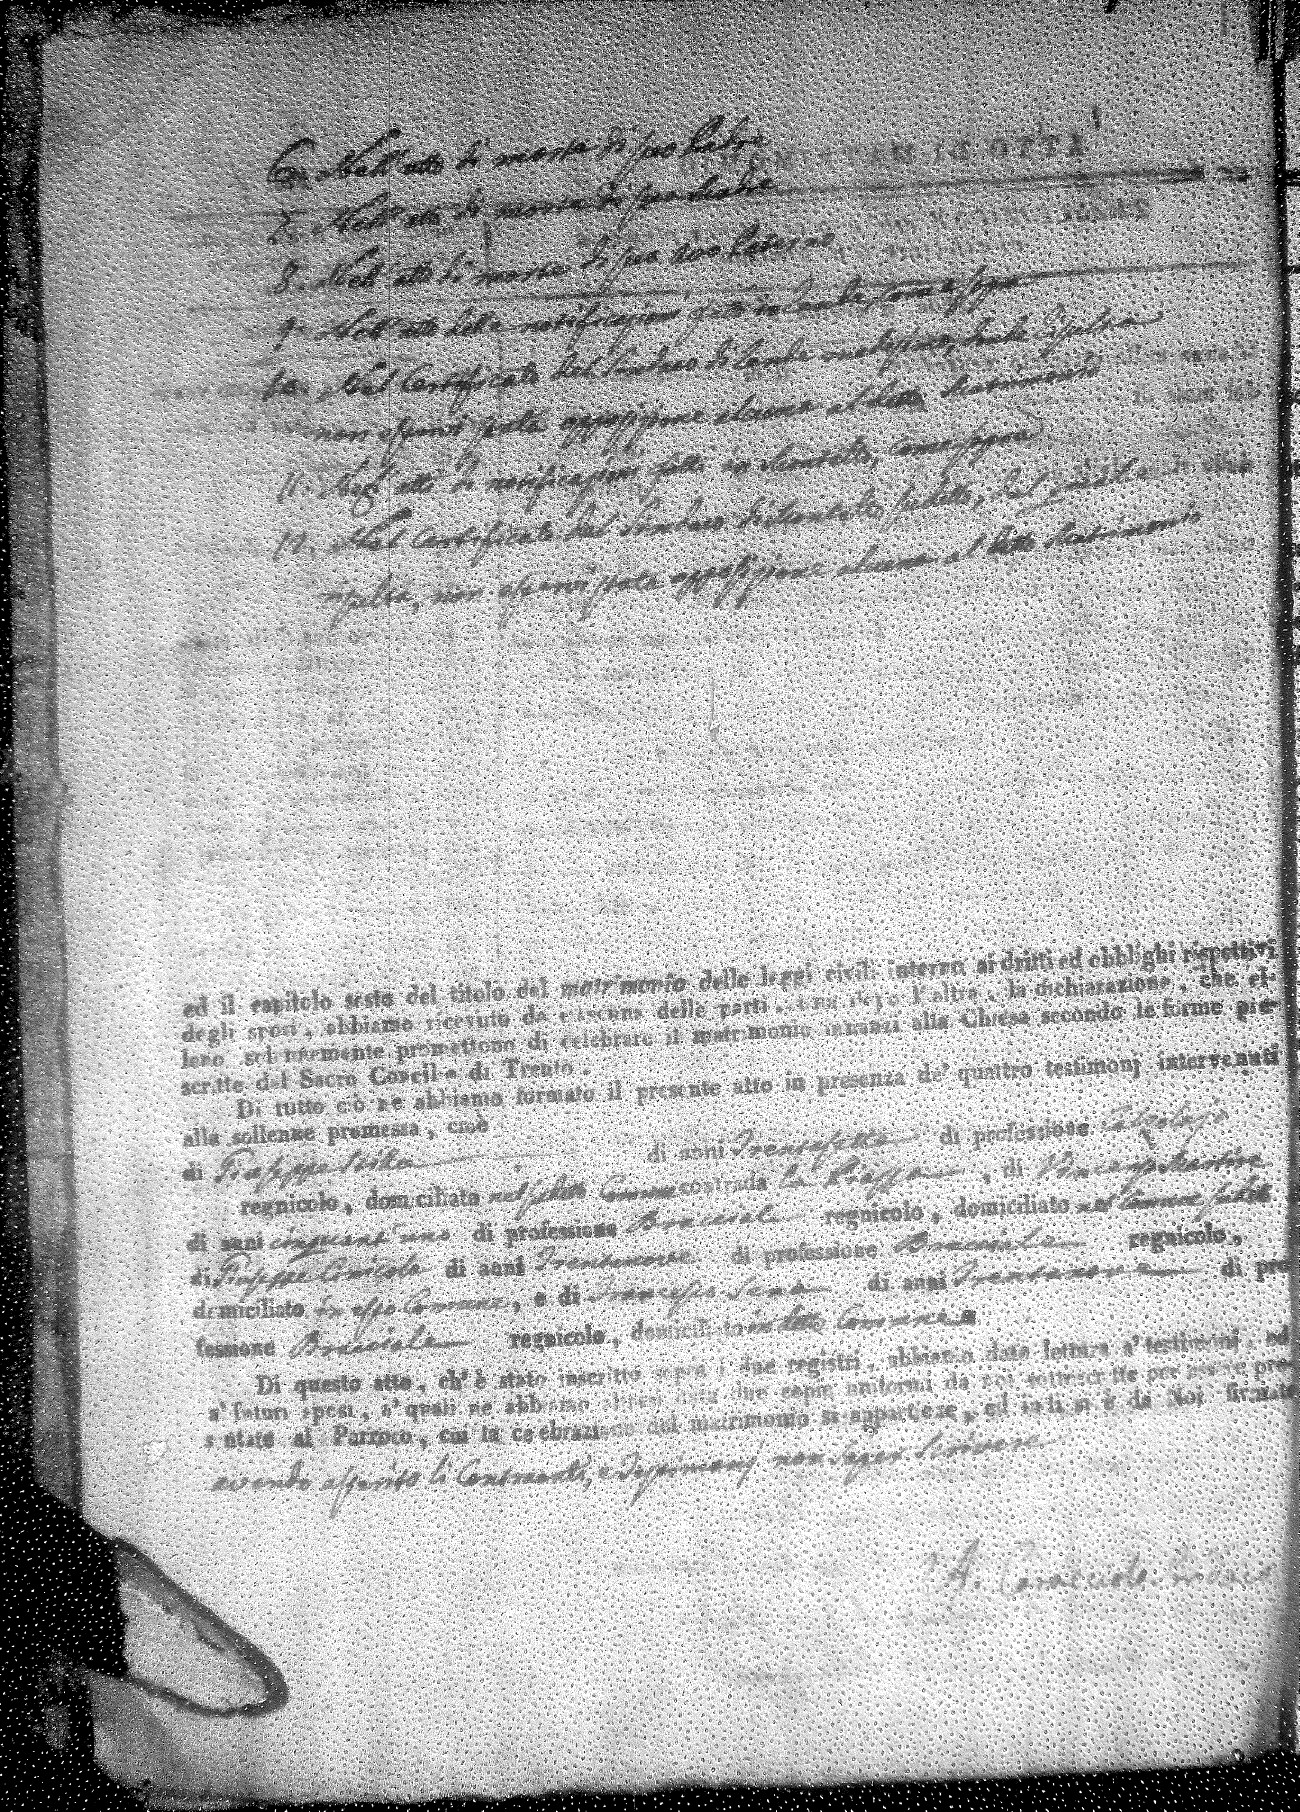 6. Nell'atto di morte di suo Padre
7. Nell'atto di morte di sua Madre
8. Nell'atto di morte di suo Avo Paterno
9. Nell'atto della notificazione fatta in
10. Nel Certificato del Sindaco di
non essersi fatta opposizione alcuna al detto Matrimonio
11. Negl'atti di notificazione fatta in
12. Nel Certificato del Sindaco di
risulta, non essersi fatta opposizione alcuna al detto Matrimonio
ed il capitolo sesto del titolo del matrimonio delle leggi civili intorno ai dritti ed obblighi rispettivi
degli sposi, abbiamo ricevuto da ciascuna delle parti, una dopo l'altra, la dichiarazione, che el-
leno solennemente promettono di celebrare il matrimonio innanzi alla Chiesa secondo le forme pre-
scritte dal Sacro Concilio di Trento.
Di tutto ciò ne abbiamo formato il presente atto in presenza de' quattro testimonj intervenuti
alla sollenne promessa, cioè
di Giuseppe di anni Trentasette di professione
regnicolo, domiciliato nel suddetto Comune contrada la Piazza, di Vincenzo
di anni cinquant'uno di professione Bracciale regnicolo, domiciliato nel Comune suddetto
di Giuseppe di anni Trentanove di professione Bracciale regnicolo,
domiciliato in esso Comune, e di Francesco di anni Trentanove di pro-
fessione Bracciale regnicolo, domiciliato in detto Comune
Di questo atto, ch'è stato inscritto sopra i due registri, abbiamo dato lettura a' testimonj, ed
a' futuri sposi, a' quali ne abbiamo altresì data due copie uniformi da noi sottoscritte per essere pre-
sentate al Parroco, cui la celebrazione del matrimonio si appartiene, ed indi si è da Noi firmato
avendo asserito li Contraenti, e Testimonj non saper scrivere